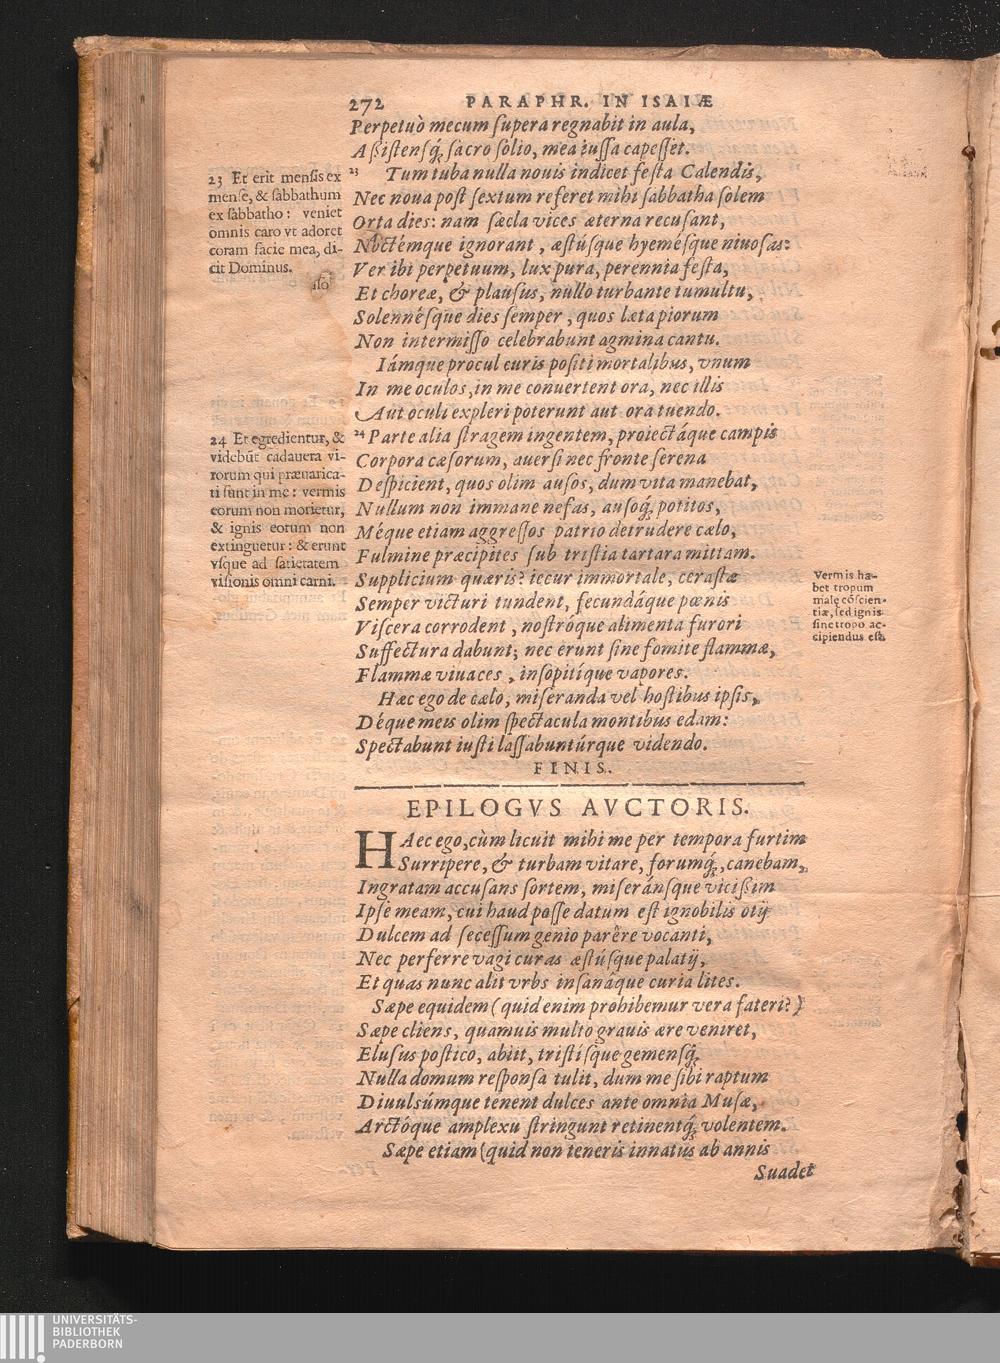 272 PARAPHR. IN ISAIÆ
Perpetuò mecum ſupera regnabit in aula,
Aßiſtenſq́; ſacro ſolio, mea iuſſa capeſſet.
23 Tum tuba nulla nouis indicet feſta Calendis,
Nec noua poſt ſextum referet mihi ſabbatha ſolem
Orta dies: nam ſæcla vices æterna recuſant,
Noctémque ignorant, æſtúſque hyeméſque niuoſas:
Ver ibi perpetuum, lux pura, perennia feſta,
Et choreæ, & plauſus, nullo turbante tumultu,
Solennéſque dies ſemper, quos læta piorum
Non intermiſſo celebrabunt agmina cantu.
Iámque procul curis poſiti mortalibus, vnum
In me oculos, in me conuertent ora, nec illis
Aut oculi expleri poterunt aut ora tuendo.
24 Parte alia ſtragem ingentem, proiectáque campis
Corpora cæſorum, auerſi nec fronte ſerena
Deſpicient, quos olim auſos, dum vita manebat,
Nullum non immane nefas, auſoq́; potitos,
Méque etiam aggreſſos patrio detrudere cælo,
Fulmine præcipites ſub triſtia tartara mittam.
Supplicium quæris? iecur immortale, ceraſtæ
Semper victuri tundent, fecundáque pœnis
Viſcera corrodent, noſtróque alimenta furori
Suffectura dabunt; nec erunt ſine fomite flammæ,
Flammæ viuaces, inſopitíque vapores.
Hæc ego de cælo, miſeranda vel hoſtibus ipſis,
Déque meis olim ſpectacula montibus edam:
Spectabunt iuſti laſſabuntúrque videndo.
FINIS.
23 Et erit menſis ex
menſe, & ſabbathum
ex ſabbatho: veniet
omnis caro vt adoret
coram facie mea, di-
cit Dominus.
24 Et egredientur, &
videbũt cadauera vi-
rorum qui præuarica-
ti ſunt in me: vermis
eorum non morietur,
& ignis eorum non
extinguetur: & erunt
vſque ad ſatietatem
viſionis omni carni.
Vermis ha-
bet tropum
malę cõſcien-
tiæ, ſed ignis
ſine tropo ac-
cipiendus eſt.
EPILOGVS AVCTORIS.
HAec ego, cùm licuit mihi me per tempora furtim
Surripere, & turbam vitare, forumq́;, canebam,
Ingratam accuſans ſortem, miſeránſque vicißim
Ipſe meam, cui haud poſſe datum eſt ignobilis otij
Dulcem ad ſeceſſum genio parêre vocanti,
Nec perferre vagi curas æſtúſque palatij,
Et quas nunc alit vrbs inſanáque curia lites.
Sæpe equidem (quid enim prohibemur vera fateri?)
Sæpe cliens, quamuis multo grauis ære veniret,
Eluſus poſtico, abiit, triſtíſque gemenſq́;
Nulla domum reſponſa tulit, dum me ſibi raptum
Diuulſúmque tenent dulces ante omnia Muſæ,
Arctóque amplexu ſtringunt retinentq́; volentem.
Sæpe etiam (quid non teneris innatũs ab annis
Suadet
UNIVERSITÄTS-
BIBLIOTHEK
PADERBORN